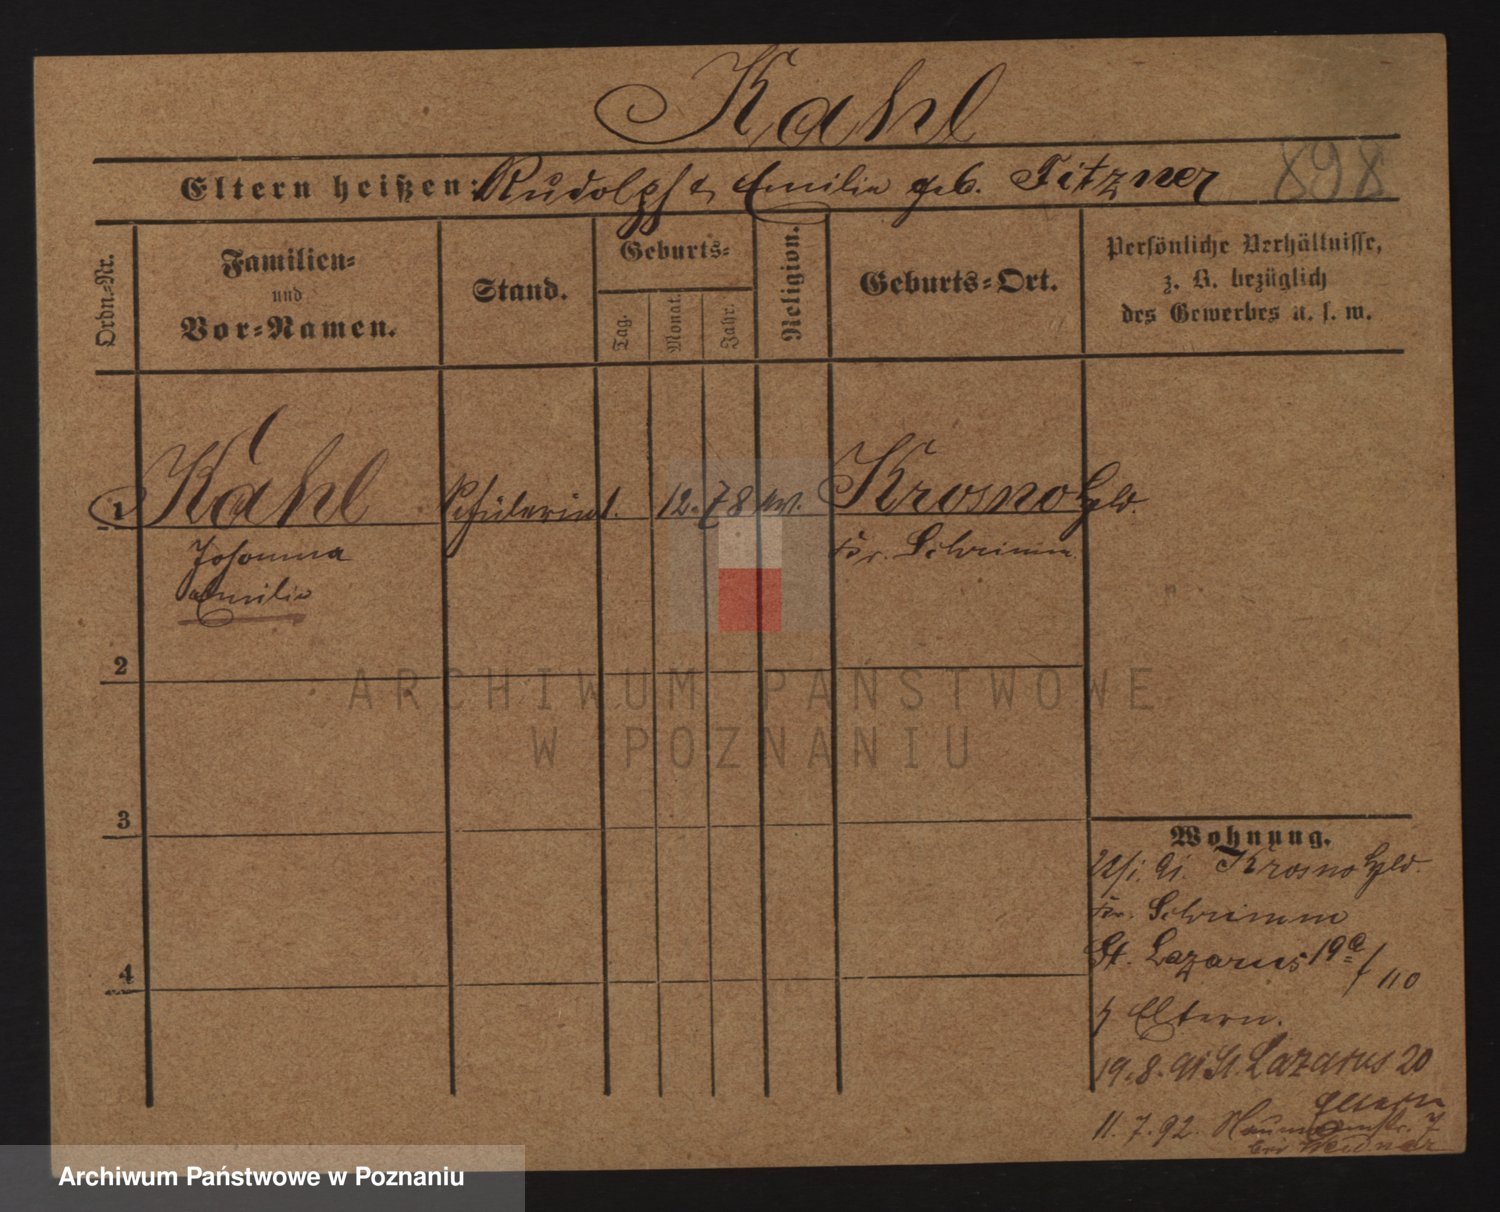 Kahl
Eltern heißen: Rudolph u. Emilie geb. Titzner 898
Ordn.-Nr.
Familien-
und
Vor-Namen.
Stand.
Geburts-
Tag. Monat. Jahr.
Religion.
Geburts-Ort.
Persönliche Verhältnisse,
z. B. bezüglich
des Gewerbes u. s. w.
1 Kahl Schülerin 1. 12. 78 ev. Krosno Hld.
Johanna Kr. Schrimm
Emilie
2
3
4
Wohnung.
22/1. 91. Krosno Hld.
Kr. Schrimm
St. Lazarus 19a/110
Eltern.
19. 8. 91 St. Lazarus 20
Eltern
11. 7. 92. Naumannstr. 7
bei Weidner
ARCHIWUM PAŃSTWOWE
W POZNANIU
Archiwum Państwowe w Poznaniu